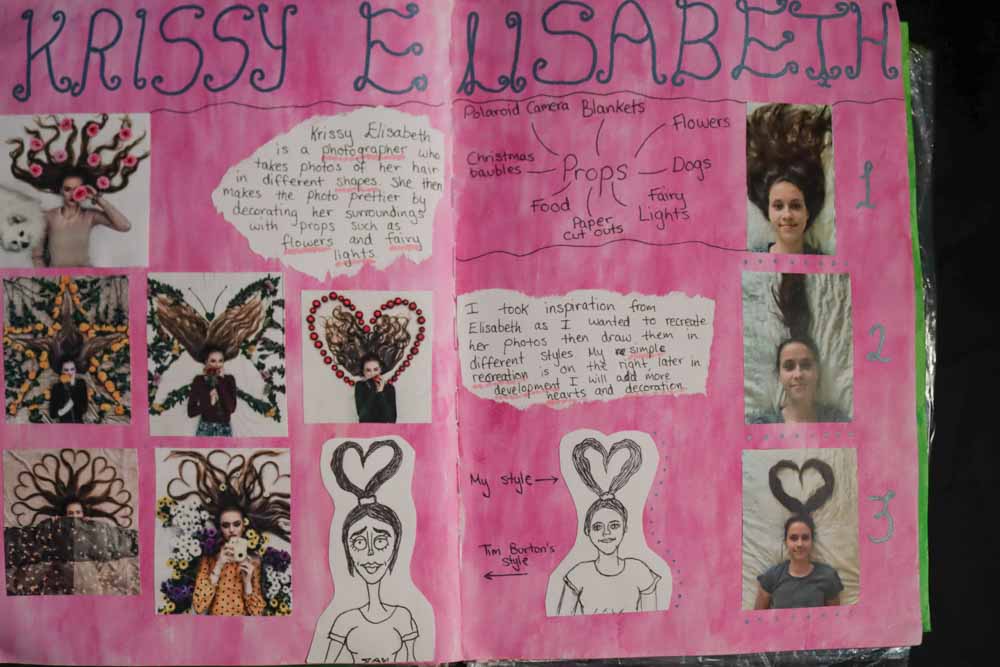 KRISSY ELISABETH
Krissy Elisabeth
is a photographer who
takes photos of her hair
in different shapes. She then
makes the photo prettier by
decorating her surroundings
with props such as
flowers and fairy
lights
Polaroid Camera
Blankets
Flowers
Christmas
baubles
Props
Dogs
Food
Paper
cut outs
Fairy
Lights
I took inspiration from
Elisabeth as I wanted to recreate
her photos then draw them in
different styles My simple
recreation is on the right, later in
development I will add more
hearts and decoration
My style
Tim Burton's
style
1
2
3